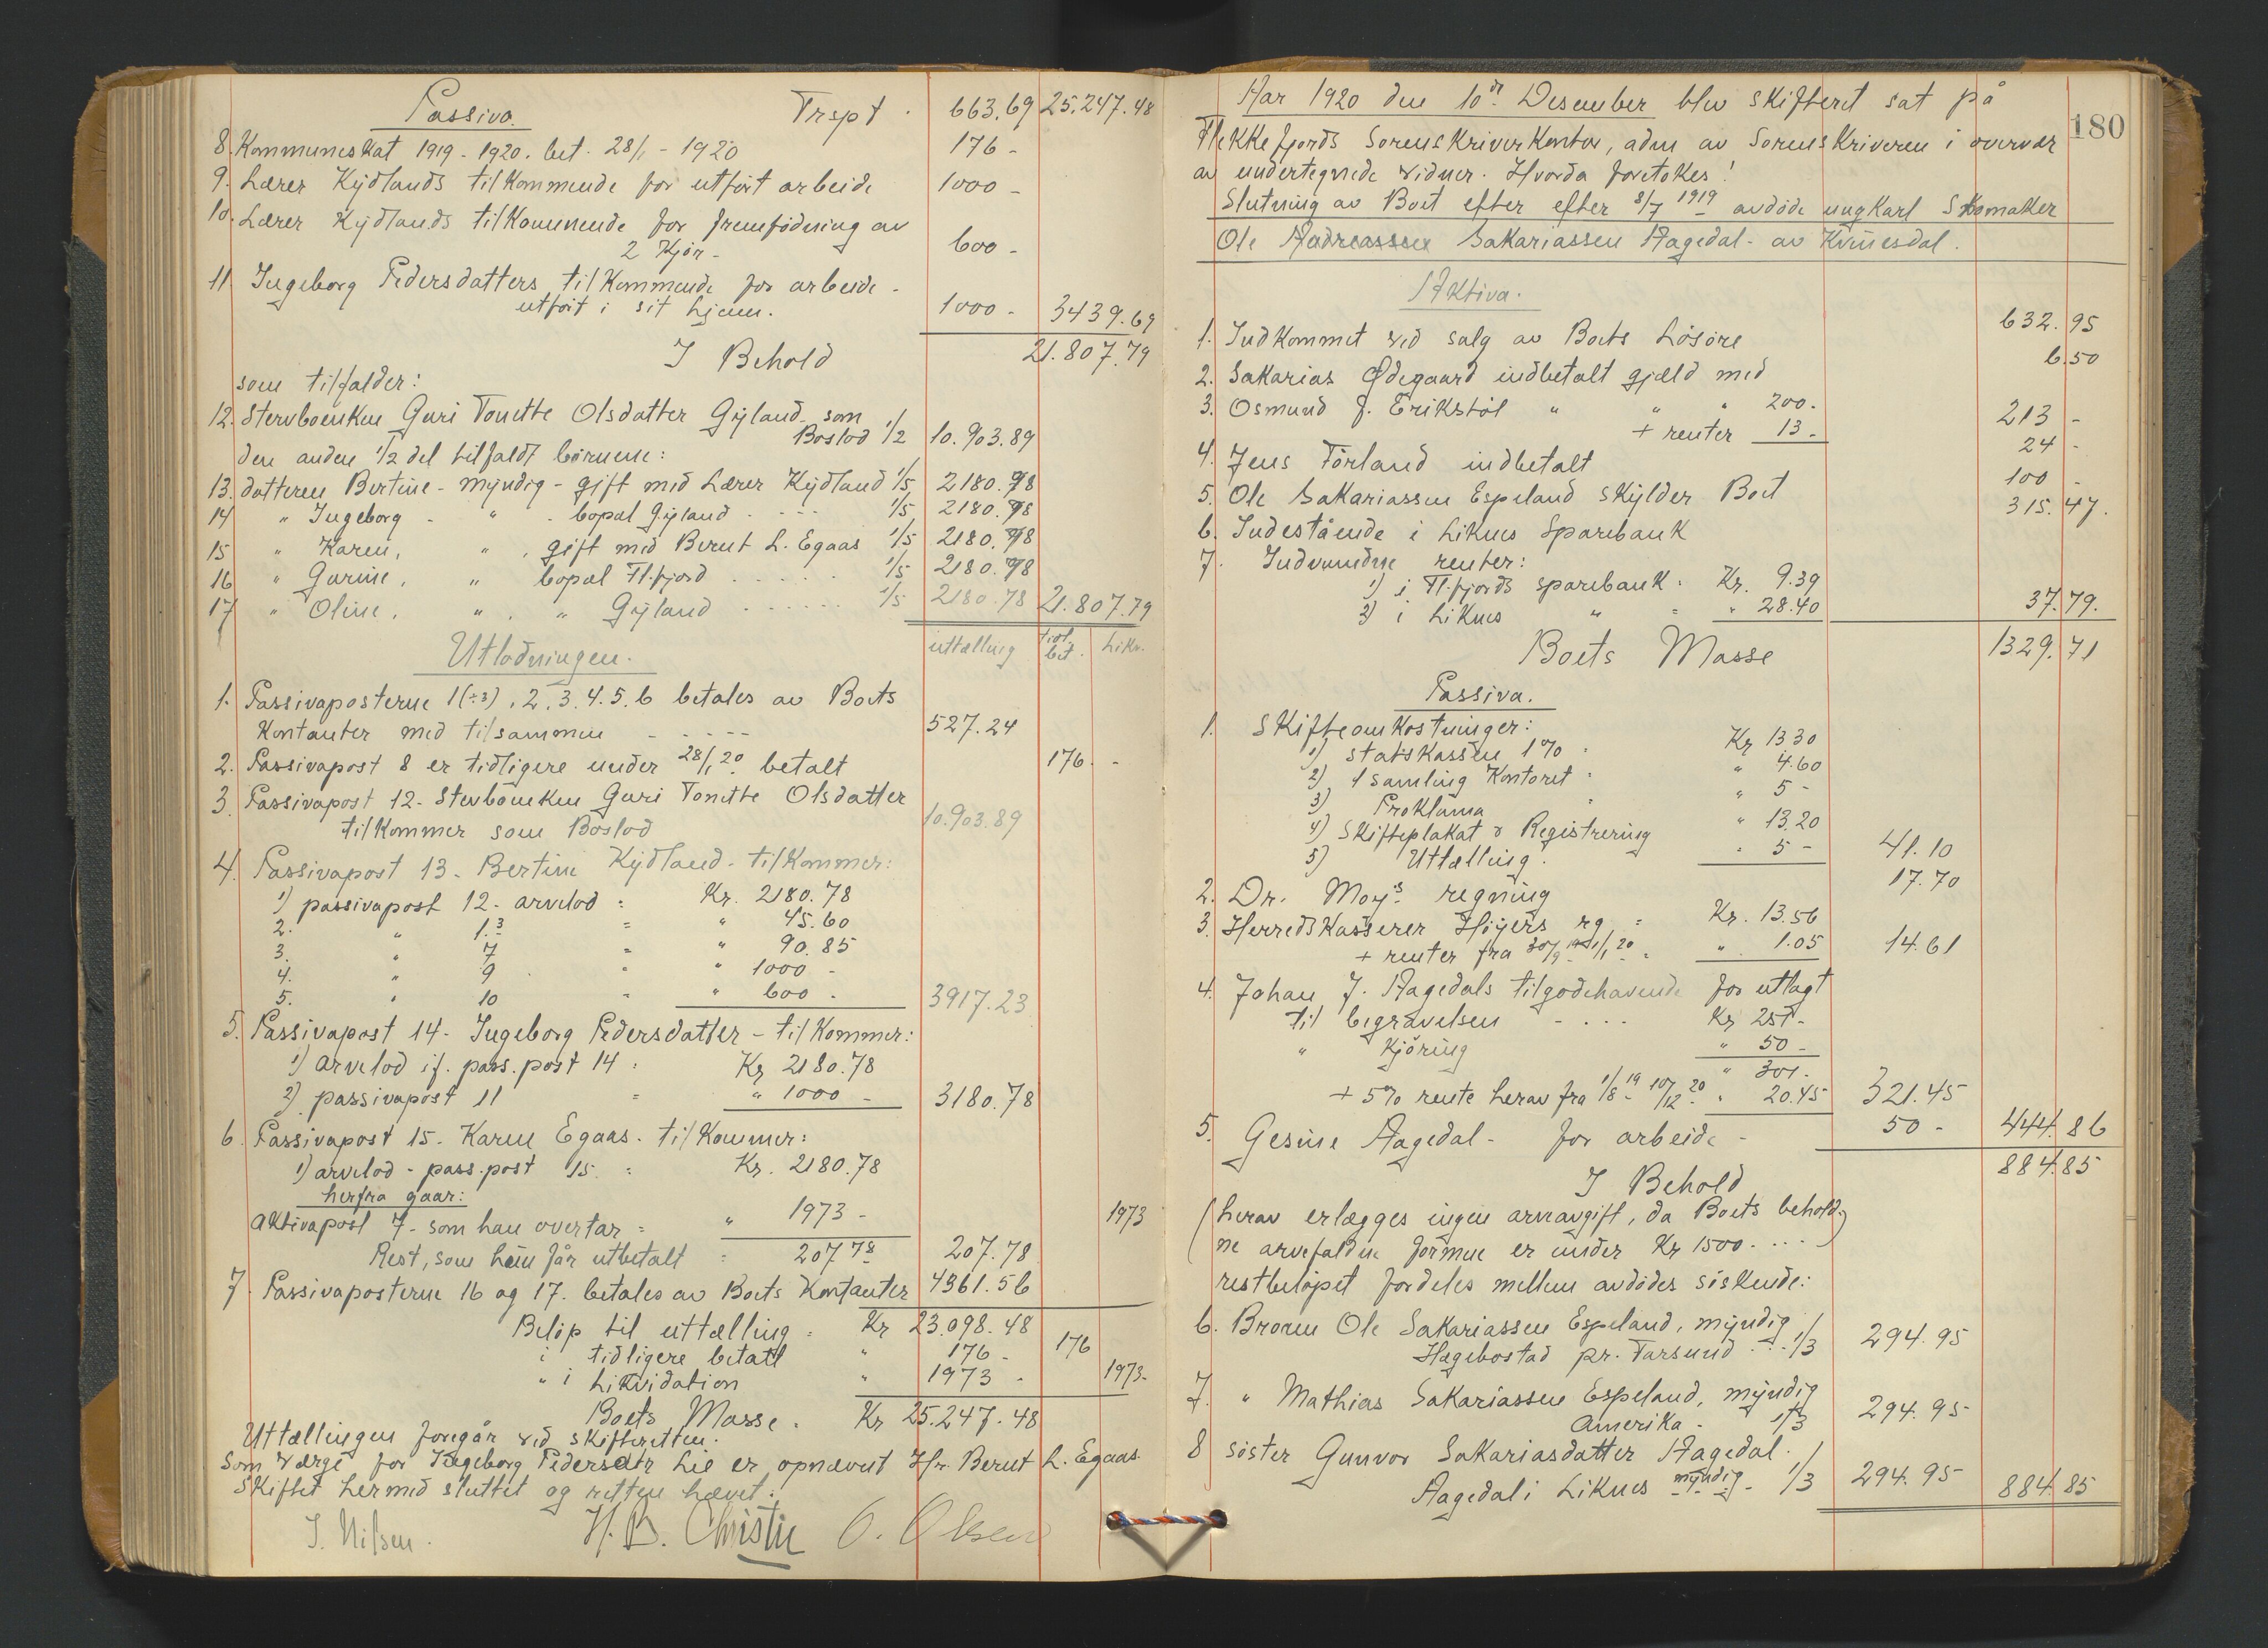 Passiva. Trspt. 663.69 25.247.48
8. Kommuneskat 1919-1920. bet. 28/1-1920 176-
9. Lærer Kydlands tilkommende for utført arbeide 1000-
10. Lærer Kydlands tilkommende for fremfødning av
2 Kjør- 600-
11 Ingeborg Pedersdatters tilkommende for arbeide-
utført i sit hjem. 1000- 3439.69
I Behold 21.807.79
som tilfalder:
12. Stervboenken Guri Tonette Olsdatter Gyland som
Boslod 1/2 10.903.89
den anden 1/2 del tilfaldt børnene:
13. datteren Bertine-myndig-gift med Lærer Kydland 1/5 2180.78
14 " Ingeborg - " - bopæl Gyland 1/5 2180.78
15 " Karen, " , gift med Bernt L. Egaas 1/5 2180.78
16 " Gurine, " bopæl Fl.fjord 1/5 2180.78
17 " Oline, " , " Gyland 1/5 2180.78 21.807.79
Utlodningen. uttælling tidl. bet. Likv.
1. Passivaposterne 1(÷3), 2, 3. 4. 5. 6 betales av Boets
Kontanter med tilsammen 527.24
2. Passivapost 8 er tidligere under 28/1 20 betalt 176.-
3. Passivapost 12- Stervboenken Guri Tonette Olsdatter
tilkommer som Boslod 10.903.89
4. Passivapost 13- Bertine Kydland- tilkommer:
1) passivapost 12- arvelod = Kr. 2180.78
2. " 1.3 = " 45.60
3. " 7 = " 90.85
4. " 9 " " 1000-
5. " 10 " " 600- 3917.23
5. Passivapost 14- Ingeborg Pedersdatter- tilkommer:
1) arvelod if. pass.post 14 : Kr 2180.78
2) passivapost 11 = " 1000- 3180.78
6. Passivapost 15- Karen Egaas- tilkommer:
1) arvelod- pass.post 15 = Kr. 2180.78
herfra gaar:
Aktivapost 7- som han overtar = " 1973- 1973
Rest, som hun får utbetalt = 207 78 207.78
7. Passivaposterne 16 og 17. betales av Boets Kontanter 4361.56
Beløp til uttælling = Kr 23.098.48
i tidligere betalt " 176- 176
" i Likvidation " 1973- 1973-
Boets Masse. Kr 25.247.48
Uttællingen foregår ved skifteretten.
Som værge for Ingeborg Pedersdtr Lie er opnævnt Hr. Bernt L. Egaas.
Skiftet hermed sluttet og retten hævet.
J. Nilsen. H.B. Christie O. Olsen
180
Aar 1920 den 10de Desember blev skifteret sat på
Flekkefjords Sorenskriverkontor, adm av Sorenskriveren i overvær
av undertegnede vidner. Hvorda foretokes:
Slutning av Boet efter efter 8/7 1919 avdøde ungkarl Skomaker
Ole Andreassen Sakariassen Aagedal- av Kvinesdal.
Aktiva.
1. Indkommet ved salg av Boets Løsøre 632.95
2. Sakarias Ødegaard indbetalt gjæld med 6.50
3. Osmund J. Erikstøl " " " 200.
+ renter 13.- 213-
4. Jens Førland indbetalt 24-
5. Ole Sakariassen Espeland skylder Boet 100-
6. Indestående i Liknes Sparebank 315.47.
7. Indvundne renter:
1) i Fl.fjords sparebank. Kr. 9.39
2) i Liknes " = " 28.40 37.79.
Boets Masse 1329.71
Passiva.
1. Skifteomkostninger:
1) statskassen 1% = Kr 13.30
2) 1 samling Kontoret = " 4.60
3) Proklama " 5-
4) Skifteplakat & Registrering " 13.20
5) Uttælling. " 5- 41.10
2. Dr. Moys regning 17.70
3. Herredskasserer Høyers rg = Kr. 13.56
+ renter fra 30/9 19-1/1 20 = " 1.05 14.61
4. Johan J. Aagedals tilgodehavende for utlagt
til begravelsen Kr 251-
" Kjøring " 50-
" 301-
+ 5% rente herav fra 1/8 19- 10/12 20 " 20.45 321.45
5. Gesine Aagedal- for arbeide- 50- 444.86
I Behold 884.85
(herav erlægges ingen arveavgift, da Boets behold-
ne arvefaldne formue er under Kr 1500....)
restbeløpet fordeles mellem avdødes søskende:
6. Broren Ole Sakariassen Espeland, myndig
Hægebostad pr. Farsund 1/3 294.95
7. " Mathias Sakariassen Espeland, myndig
Amerika- 1/3 294.95
8 søster Gunvor Sakariasdatter Aagedal.
Aagedal i Liknes myndig- 1/3 294.95 884.85